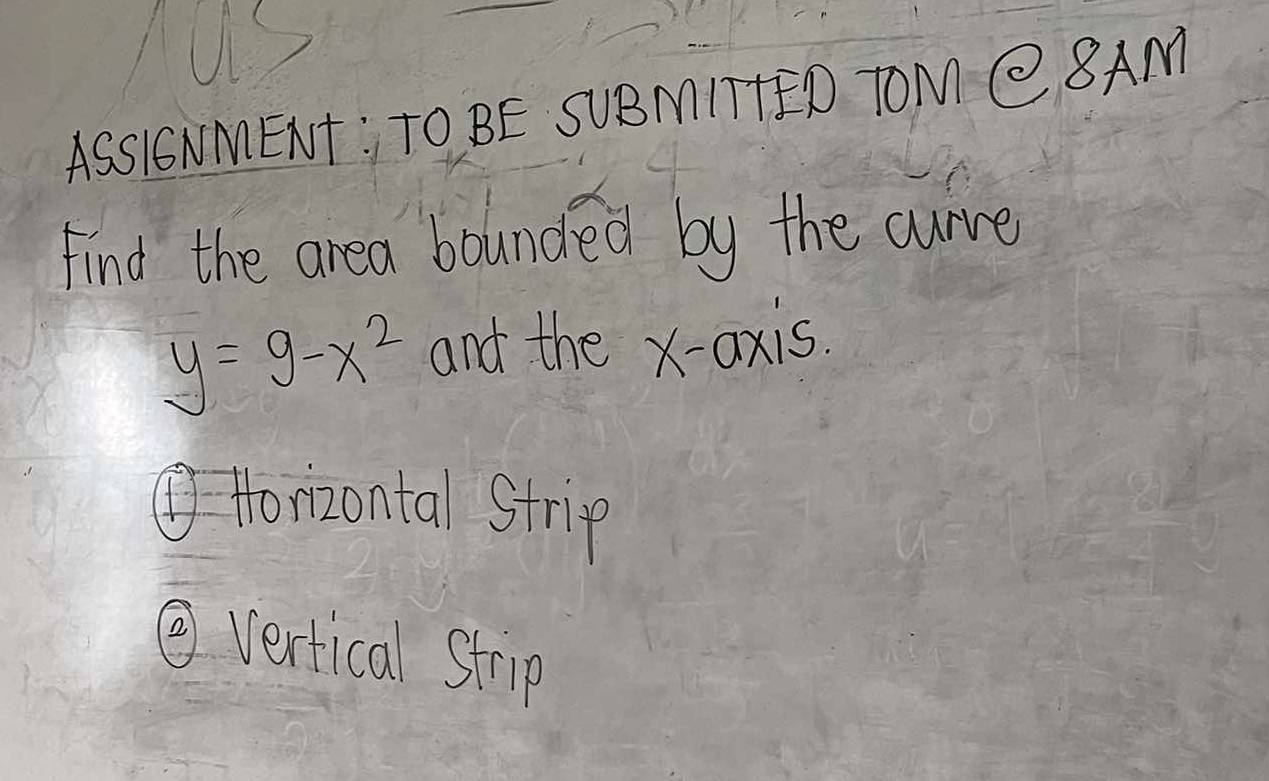 ASSIGNMENT: TO BE SUBMITTED TOM @ 8AM
Find the area bounded by the curve
y = 9-x² and the x-axis.
① Horizontal Strip
② Vertical Strip